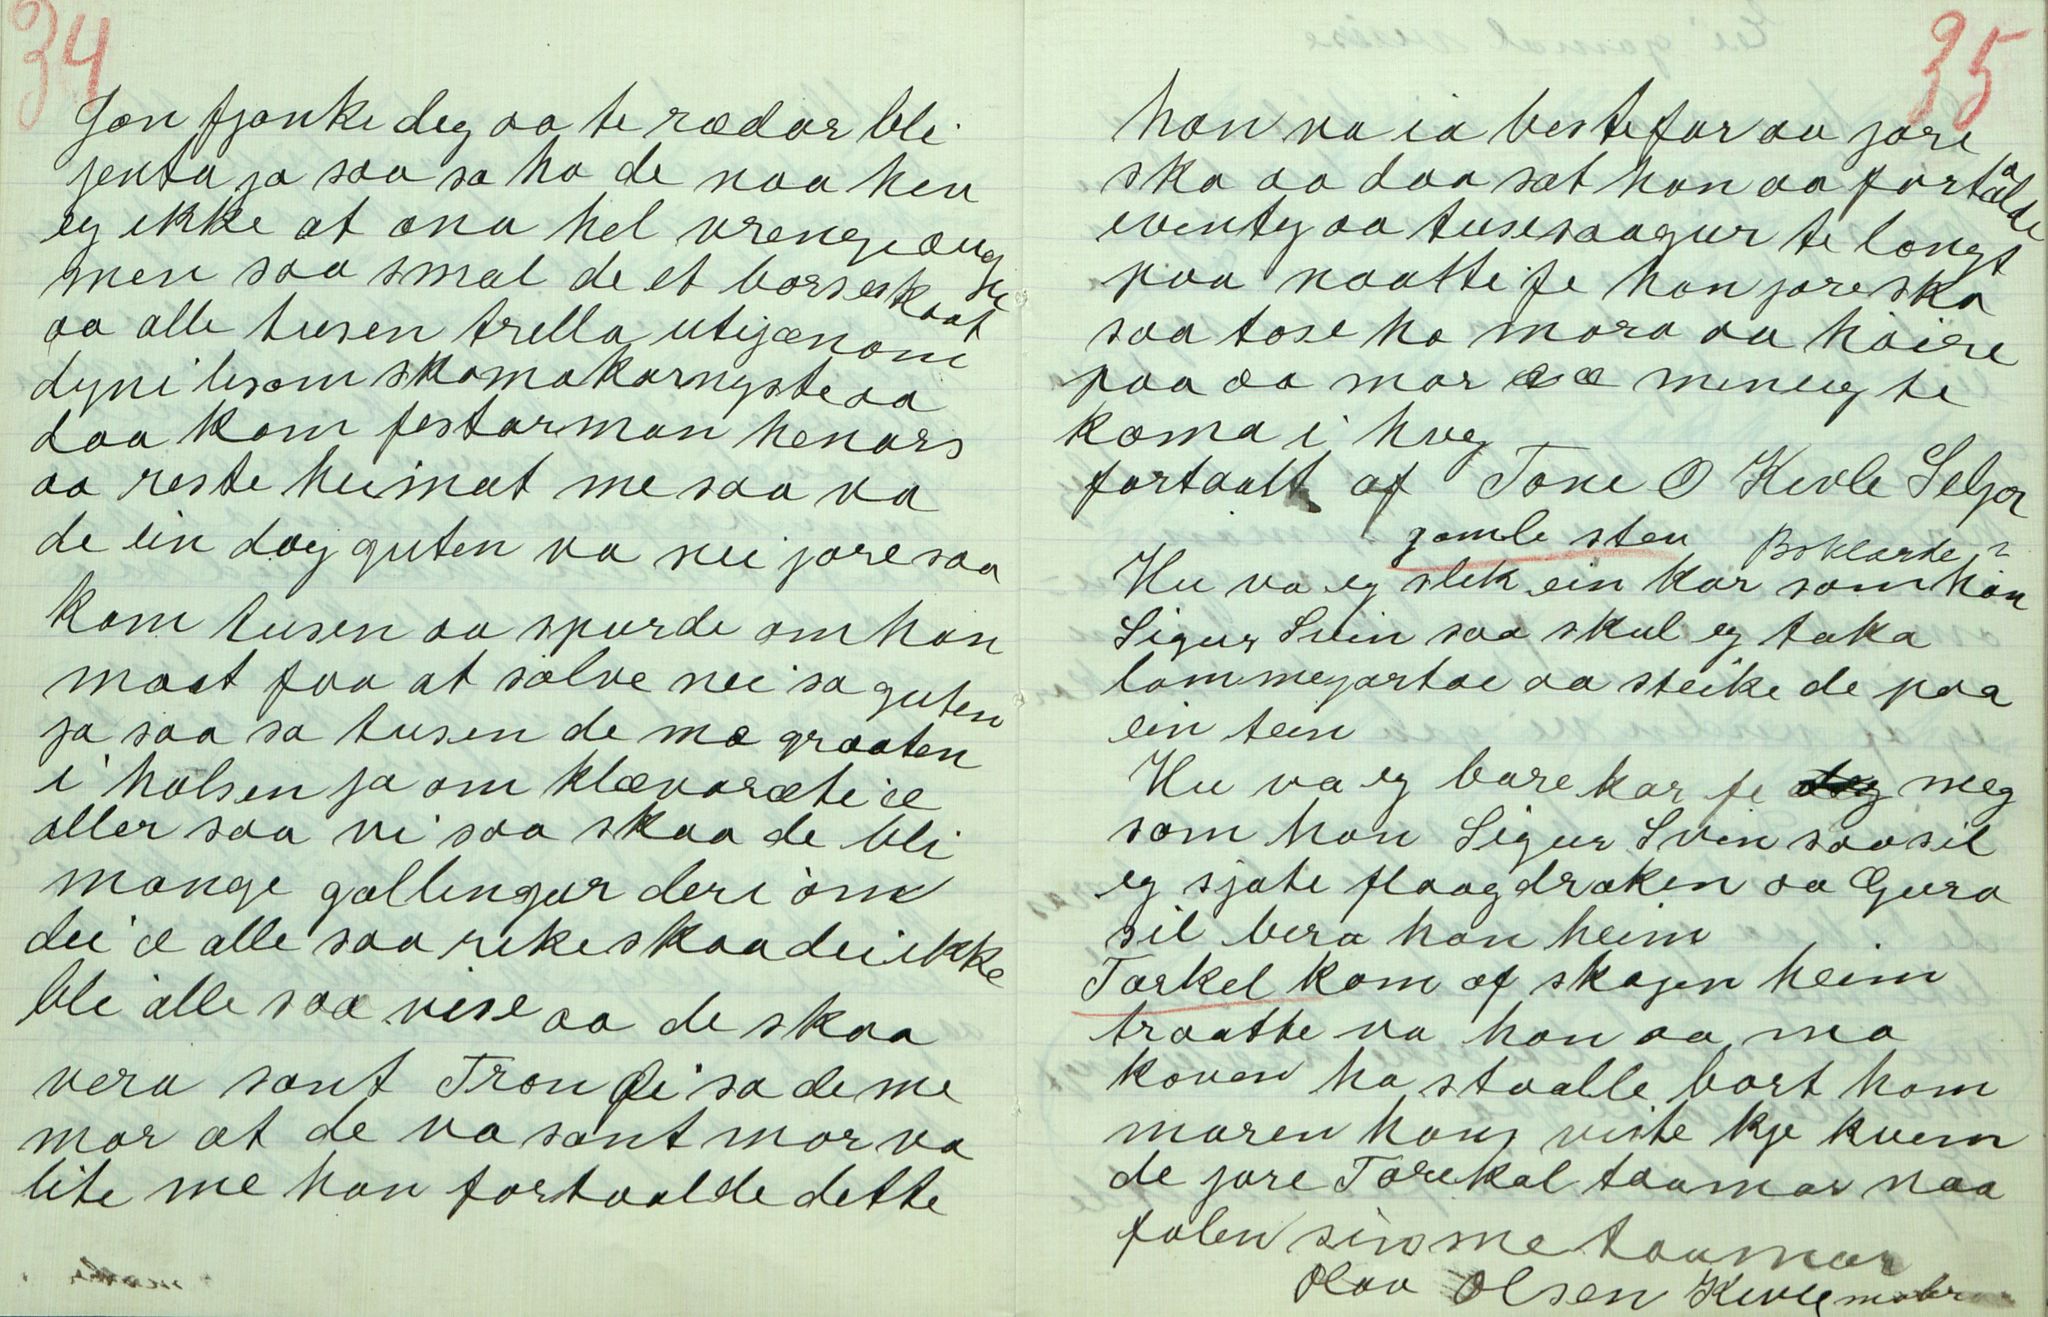 34
Jon fjonke deg aa te rædar bli
jenta ja saa sa ho de naa hev
eg ikke at ana hel vrengeaugu
men saa smal de et borseskaat
aa alle tusen trella utigænom
dyni lesom skomakarnyste aa
daa kom festarman henars
aa reste heimat me saa va
de ein dag guten va nei jore saa
kom tusen aa spurde om han
maat faa at sølve nei sa guten
ja saa sa tusen de mæ graaten
i halsen ja om klævaræte æ
aller saa vi saa skaa de bli
mange gallingar der i om
dei æ alle saa rike skaa dei ikke
bli alle saa vise aa de skaa
vera sant Tron sa de me
mor at de va sant mor va
lite me han fortaalde dette
35
han va ia bestefar aa jore
ska aa daa sat han aa fortalde
eventy aa tusesaagur te longt
paa naatti fe han joreska
saa tose ho mora aa høire
paa aa mor æ mineug te
koma i hug
fortaalt af Tone O Kivle Seljor
gamle stev Boklarde ?
Hu va eg slik ein kar som han
Sigur Svin saa skul eg taka
lommegartae aa steike de paa
ein tein
Hu va eg bare kar fe meg
som han Sigur Svin saa sil
eg sjote flaagdraken aa Guro
sil bera han heim
Torkel kom af skogen heim
traatte va han aa mo
konen ha staalle bort hom
maren hans viste kje kvem
de jore Torekal taumar naa
folen sin me taumar
Olav Olsen Kivle